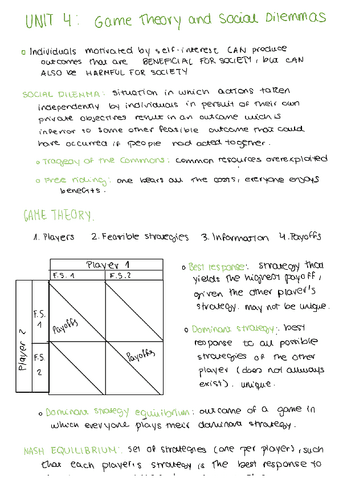 UNIT 4: Game Theory and Social Dilemmas
Individuals motivated by self-interest CAN produce
outcomes that are BENEFICIAL FOR SOCIETY, but CAN
ALSO be HARMFUL FOR SOCIETY
SOCIAL DILEMMA: situation in which actions taken
independently by individuals in pursuit of their own
private objectives result in an outcome which is
inferior to some other feasible outcome that could
have occurred if people had acted together.
Tragedy of the Commons: common resources overexploited
Free riding: one bears all the costs, everyone enjoys
benefits.
GAME THEORY.
1. Players 2. Feasible strategies 3. Information 4. Payoffs
Player 1
F.S. 1 F.S. 2
Player 2
F.S. 1
Payoffs
F.S. 2
Payoffs
Best response: strategy that
yields the highest payoff,
given the other player's
strategy. may not be unique.
Dominant strategy: best
response to all possible
strategies of the other
player (does not always
exist). unique.
Dominant strategy equilibrium: outcome of a game in
which everyone plays their dominant strategy.
NASH EQUILIBRIUM: set of strategies (one per player), such
that each player's strategy is the best response to